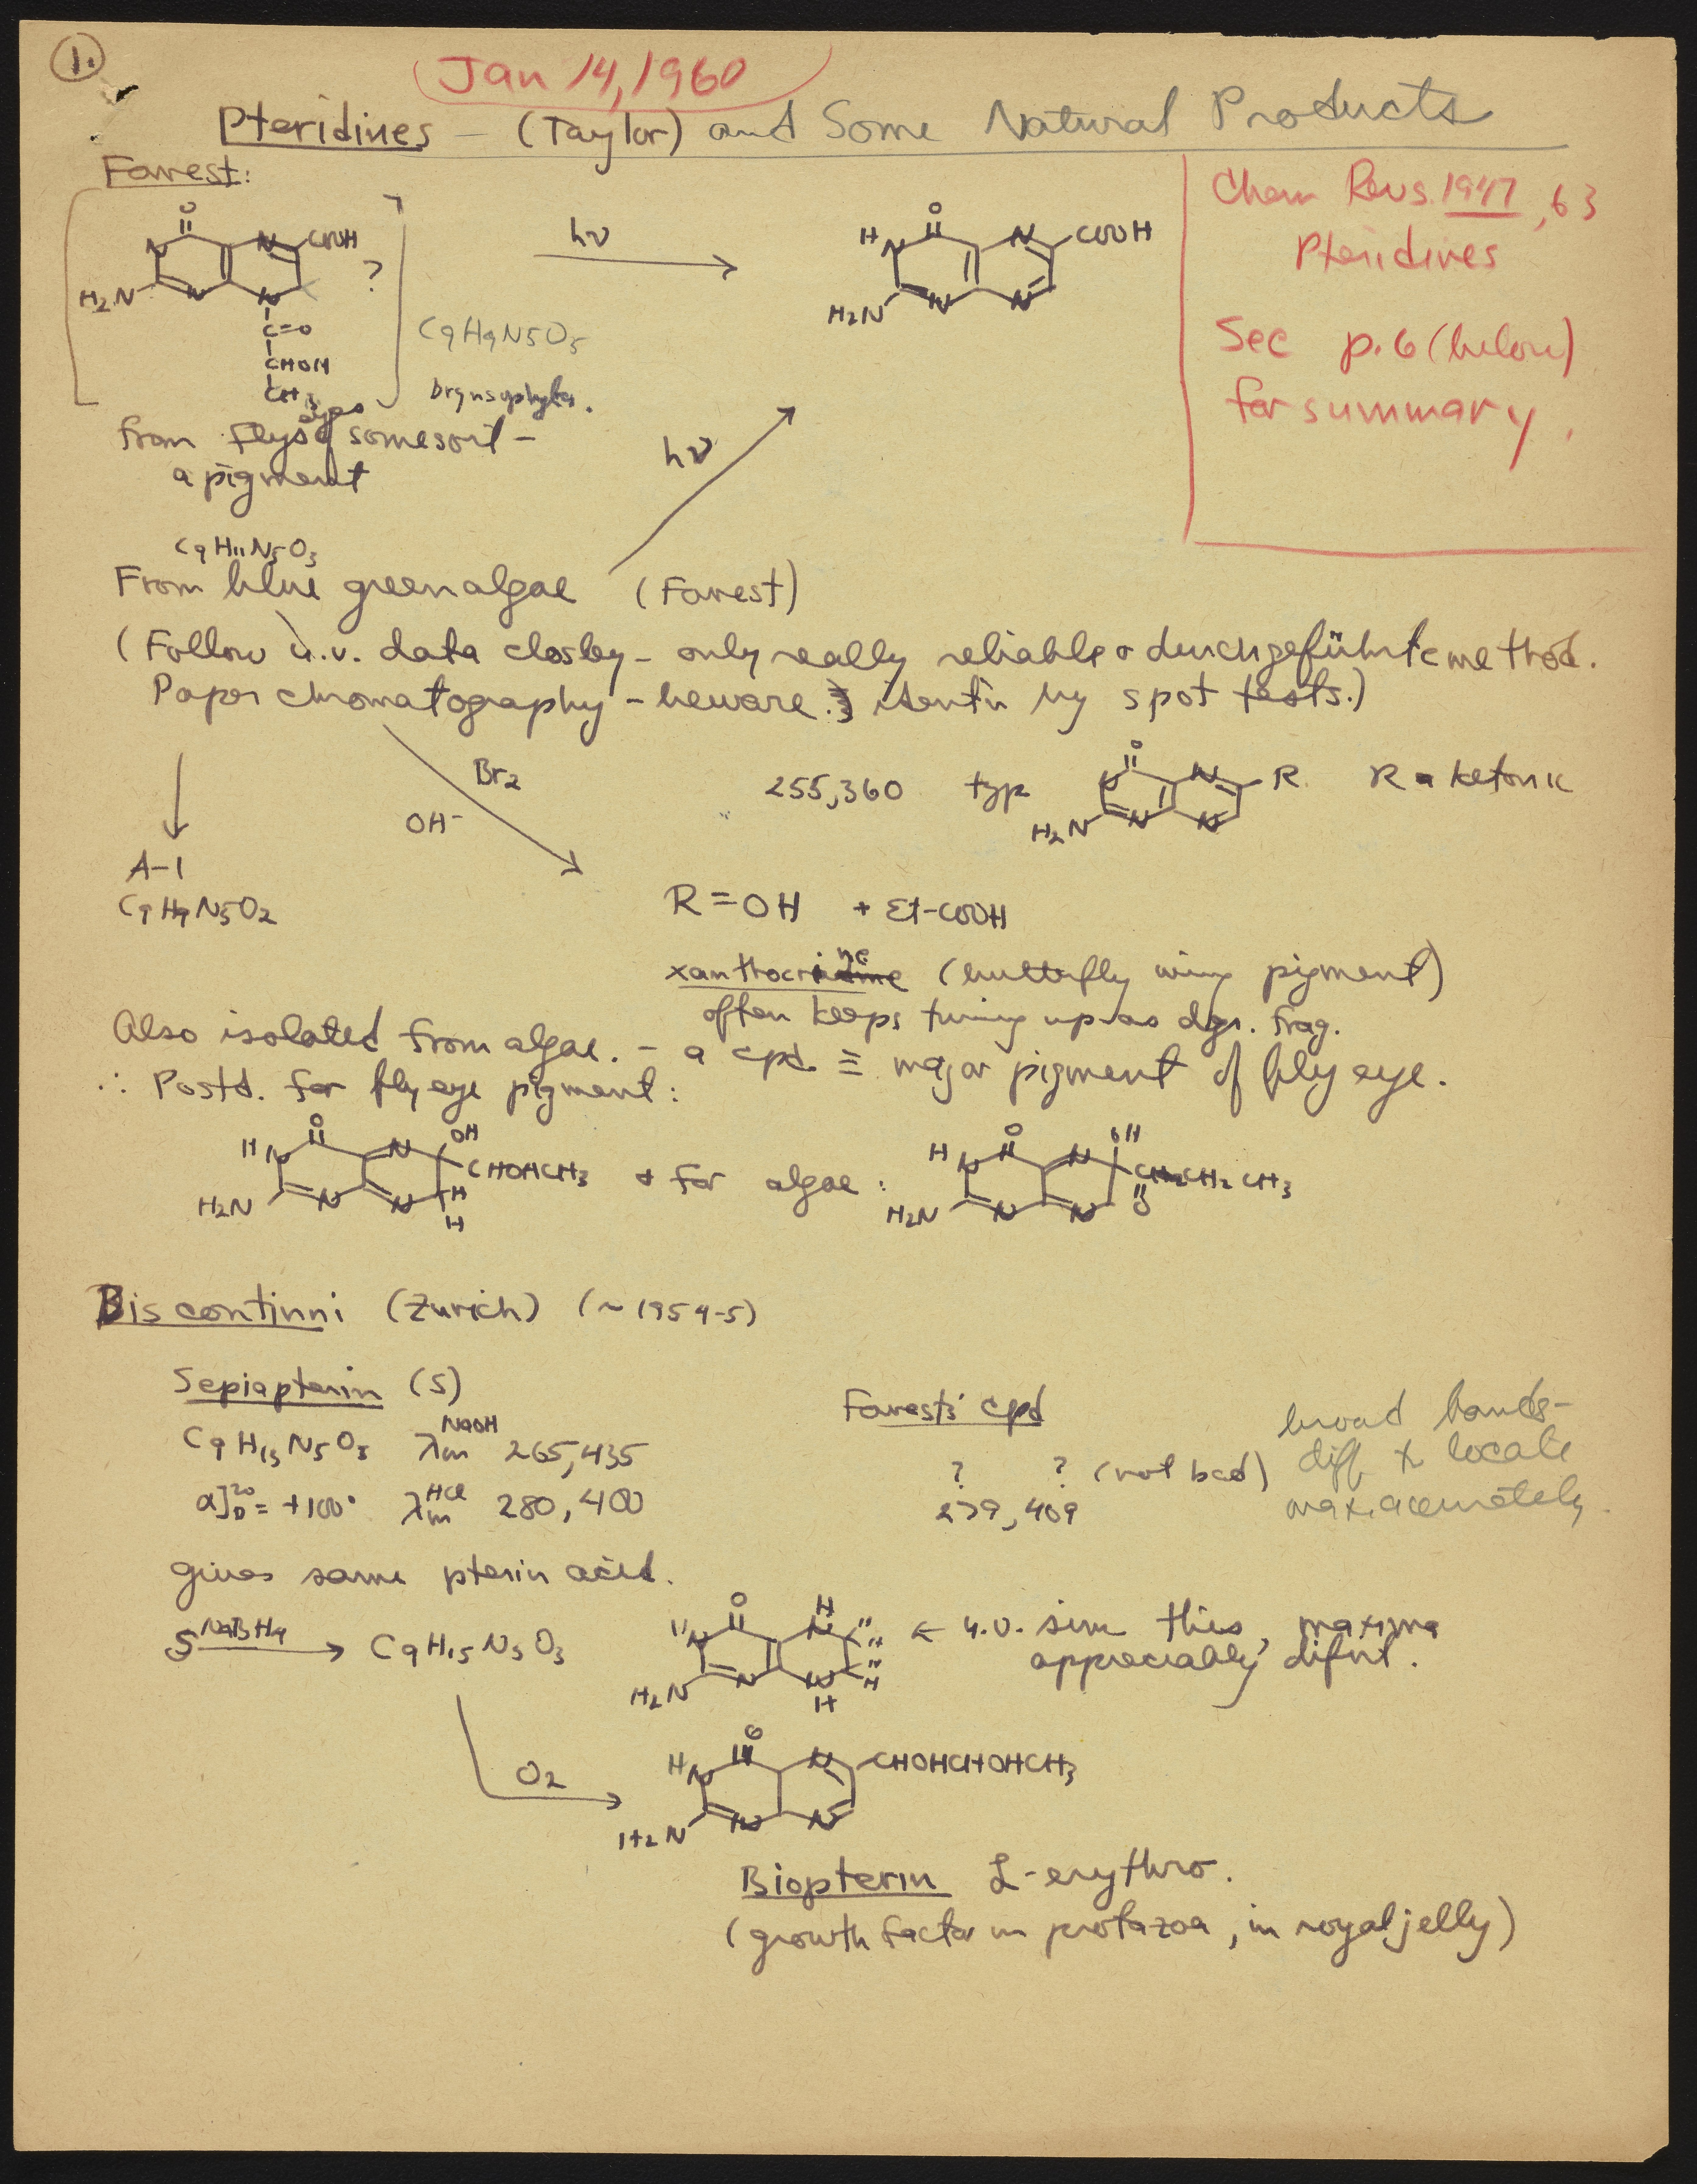 1.
Jan 14, 1960
Pteridines – (Taylor) and Some Natural Products
Forrest:
Chem Revs. 1947, 63
Pteridines
See p. 6 (below)
for summary.
O
N
N
COOH
?
H2N
N
N
C=O
CHOH
CH3
C9H9N5O5
hν
O
H
N
N
COOH
H2N
N
N
eyes
from flys of some sort –
a pigment
hν
C9H11N5O3
From blue green algae (Forrest)
(Follow u.v. data closley – only really reliable & durchgeführte method.
Paper chromatography – beware identn by spot tests.)
Br2
OH-
255, 360 typ
O
N
R
H2N
N
N
R = ketonic
A-1
C9H9N5O2
R = OH + Et-COOH
(butterfly wing pigment)
often keeps turning up as dgr. frag.
Also isolated from algae. – a cpd. ≡ major pigment of fly eye.
∴ Postd. for fly eye pigment:
O
H
N
N
OH
CHOHCH3
H
H
H2N
N
N
+ for algae:
O
H
N
N
OH
CH2CH3
O
H2N
N
N
Biscontinni (Zurich) (~1954-5)
Sepiapterin (S)
C9H13N5O3 λm NaOH 265, 435
α]D20 = +100° λm HCl 280, 400
Forrests' cpd
? ? (not bad)
279, 409
broad bands –
diff to locate
max. accurately.
gives same pterin acid.
S NaBH4 → C9H15N5O3
O
H
N
H
N
H
H
H
H
H2N
N
N
H
← u.v. sim this, maxima
appreciably difnt.
O2
O
H
N
N
CHOHCHOHCH3
H2N
N
N
Biopterin L-erythro.
(growth factor in protazoa, in royal jelly)